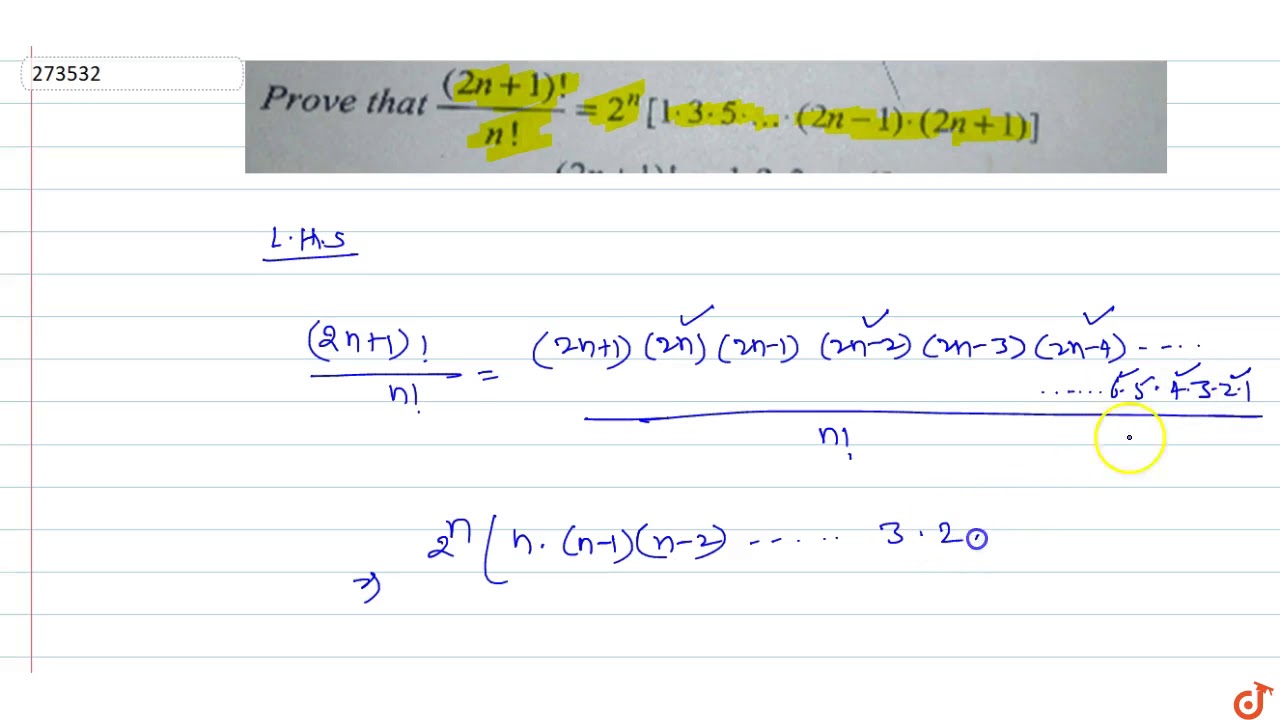 273532
Prove that (2n+1)!/n! = 2ⁿ [1·3·5·...·(2n−1)·(2n+1)]
L.H.S
(2n+1)!/n! = (2n+1) (2n) (2n-1) (2n-2) (2n-3) (2n-4) -----
...... 6.5.4.3.2.1
n!
⇒ 2ⁿ ( n. (n-1)(n-2) ------ 3.2.